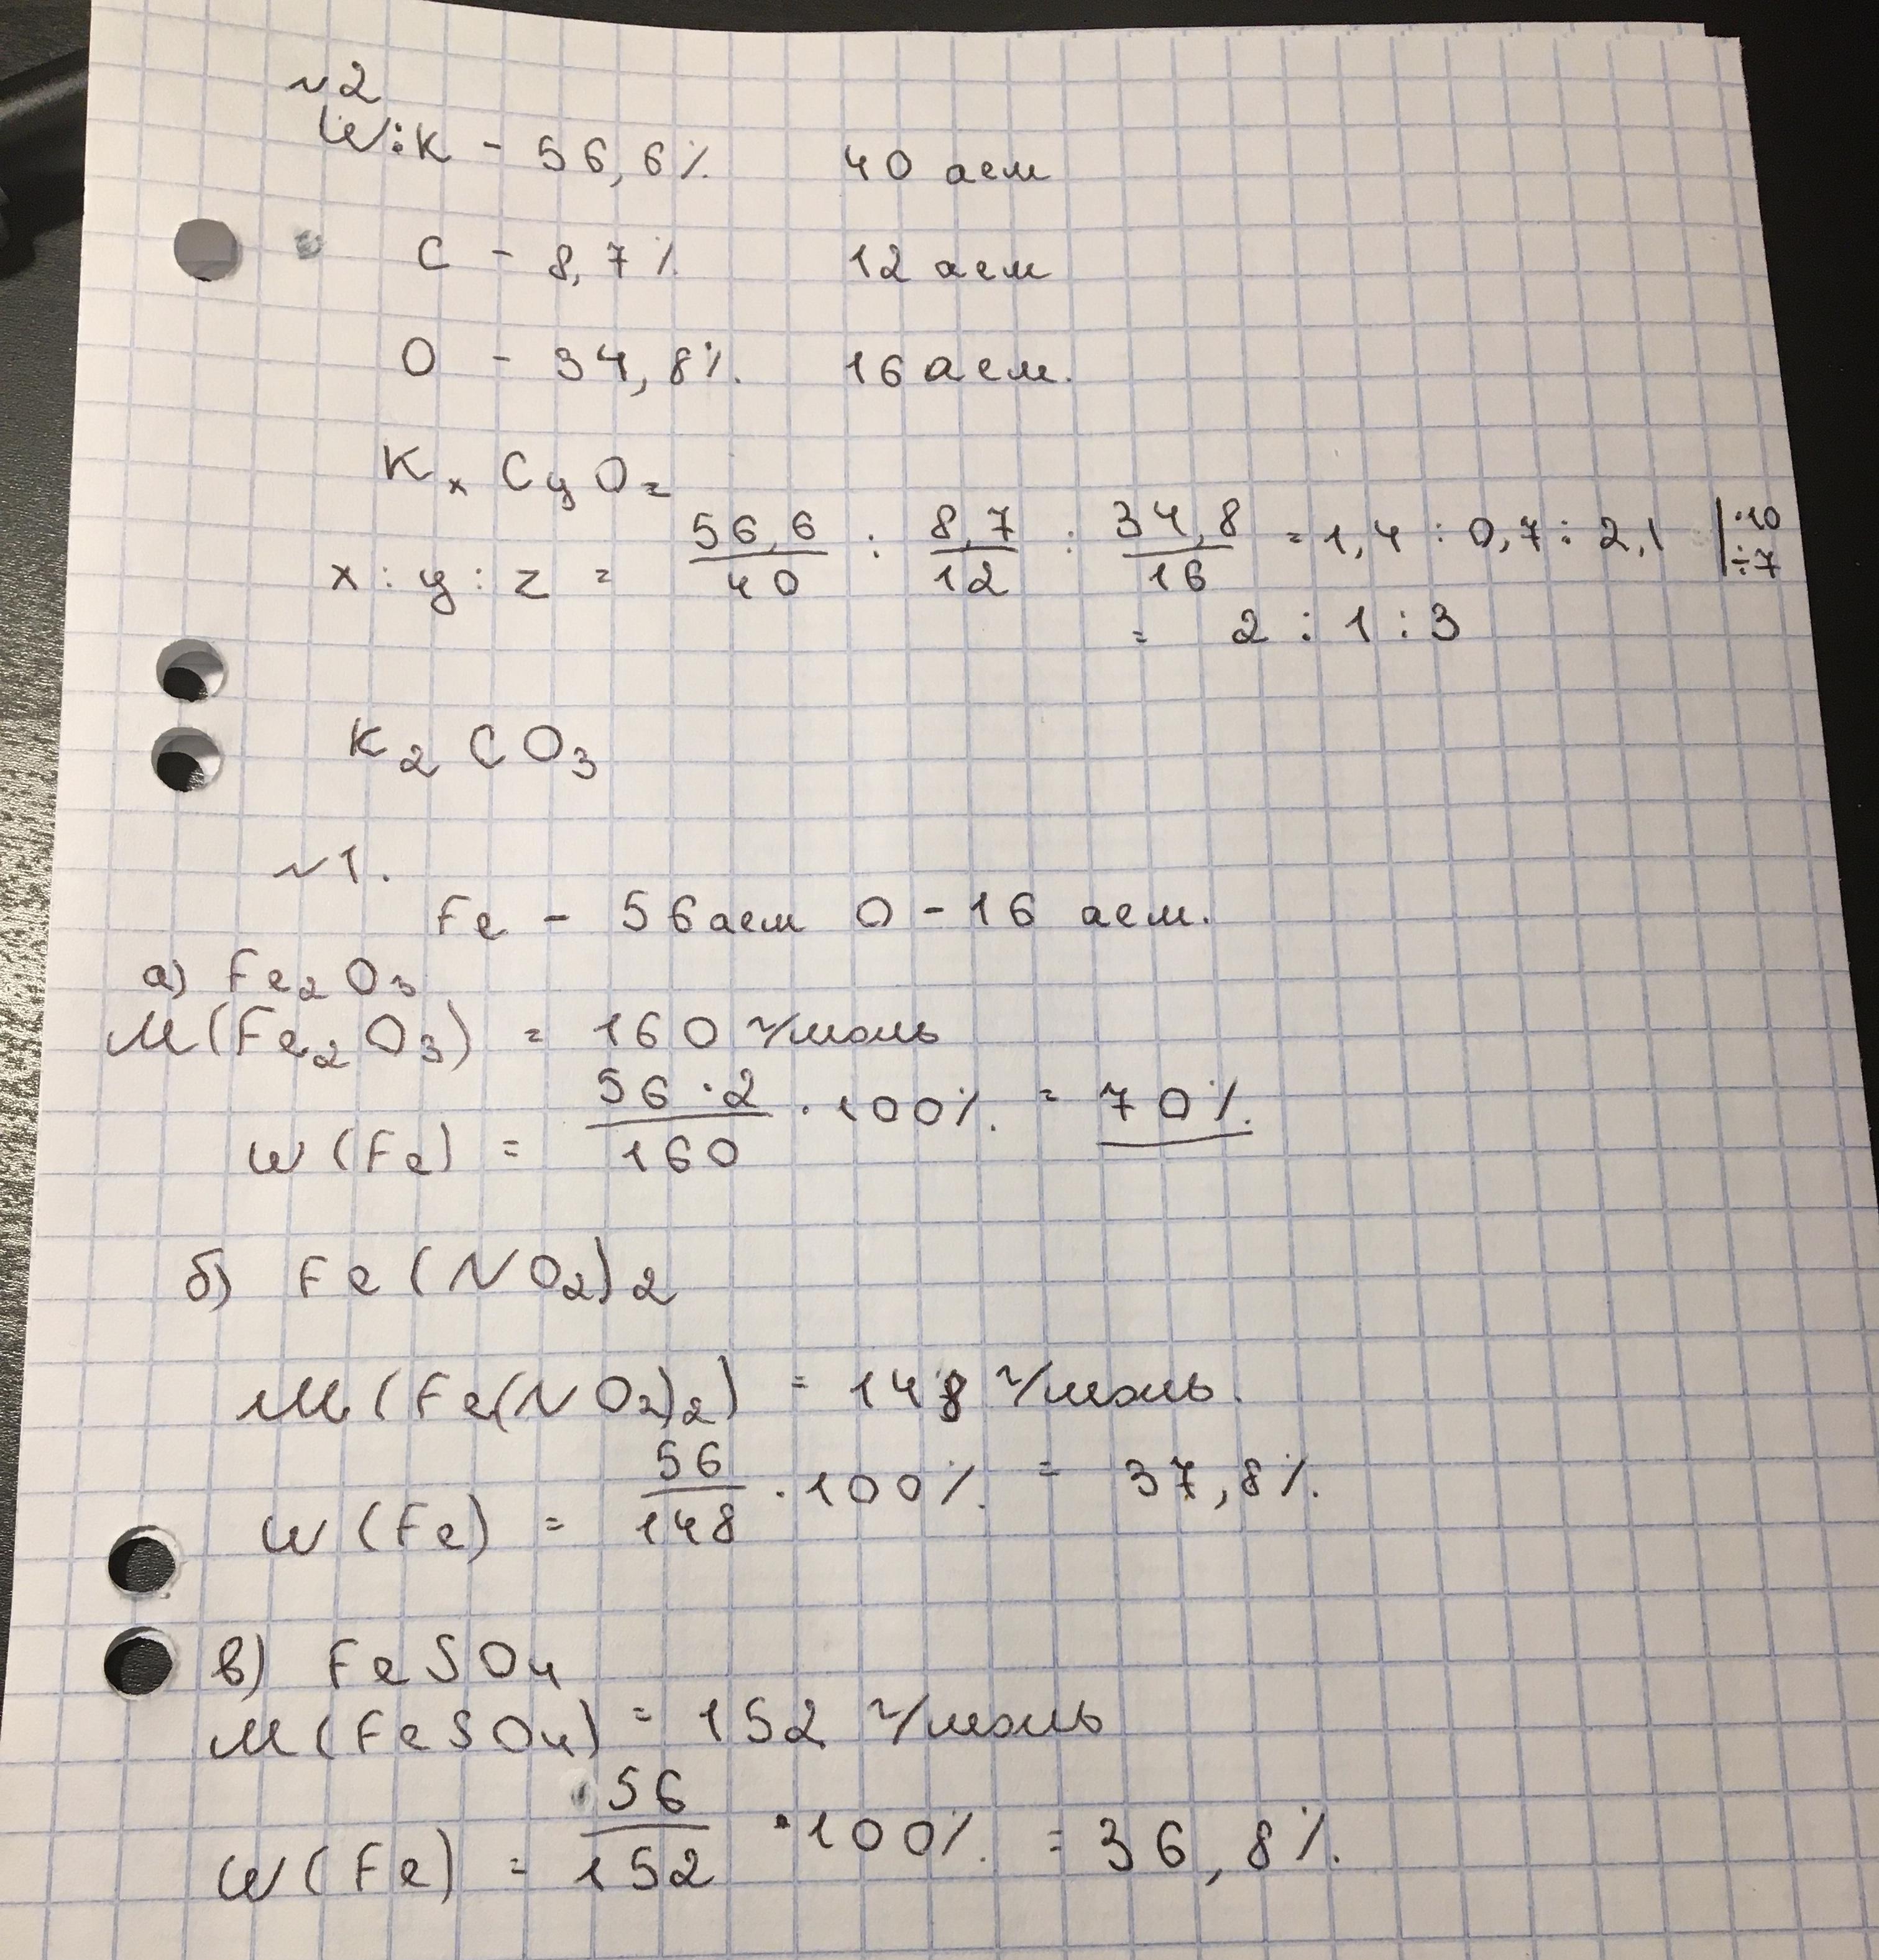 №2
W: K - 56,6% 40 аем
C - 8,7% 12 аем
O - 34,8% 16 аем.
KxCyOz
x : y : z = 56,6/40 : 8,7/12 : 34,8/16 = 1,4 : 0,7 : 2,1 | ·10 ÷7
= 2 : 1 : 3
K₂CO₃
№1.
Fe - 56 аем O - 16 аем.
а) Fe₂O₃
M(Fe₂O₃) = 160 г/моль
w(Fe) = 56·2/160 · 100% = 70%
б) Fe(NO₂)₂
M(Fe(NO₂)₂) = 148 г/моль.
w(Fe) = 56/148 · 100% = 37,8%
в) FeSO₄
M(FeSO₄) = 152 г/моль
w(Fe) = 56/152 · 100% = 36,8%